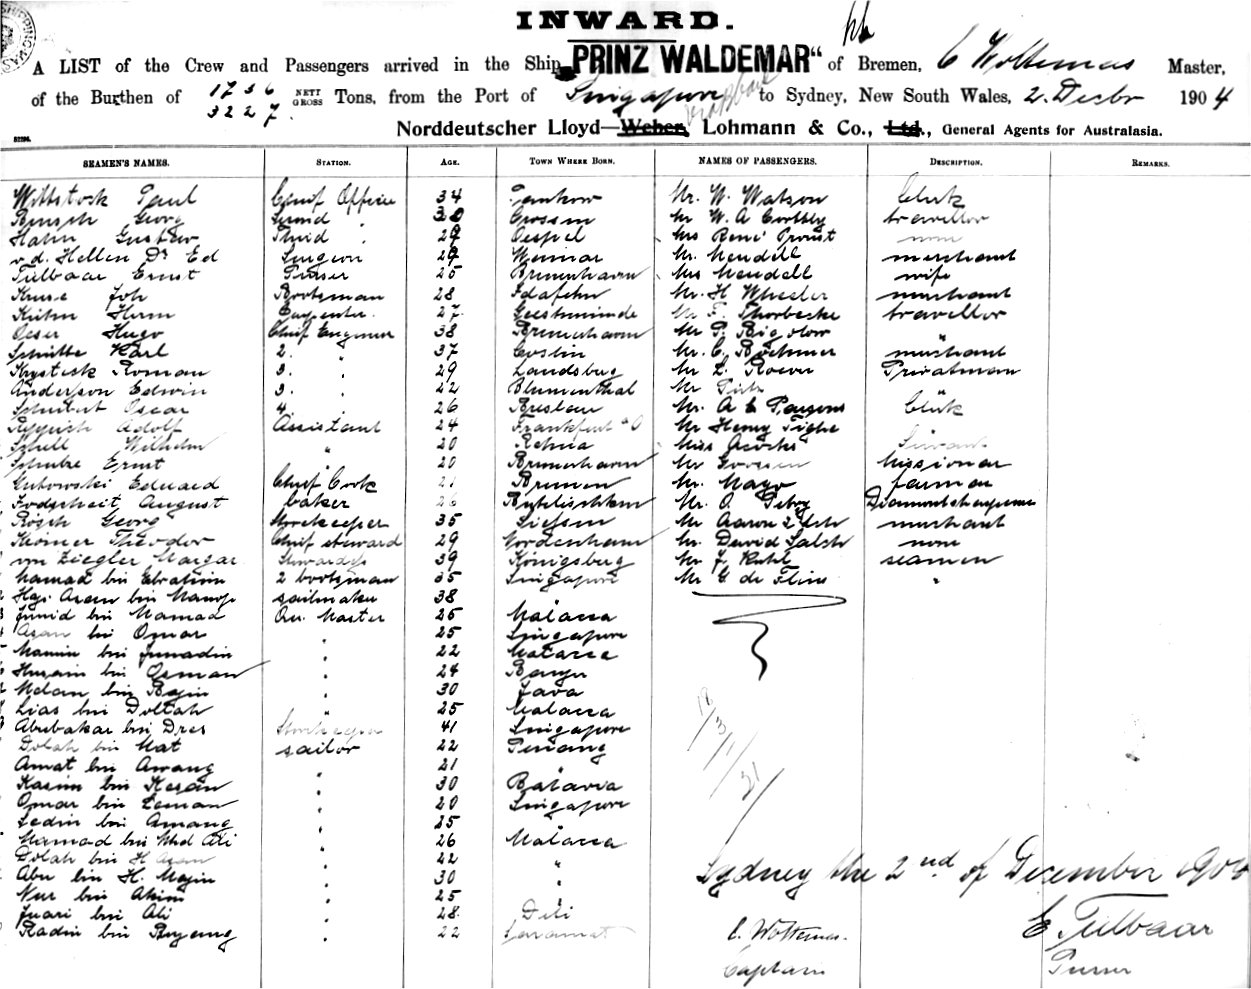 INWARD.
A LIST of the Crew and Passengers arrived in the Ship "PRINZ WALDEMAR" of Bremen, C Woltemas Master,
of the Burthen of 1736 NETT Tons, from the Port of Singapore to Sydney, New South Wales, 2. Decbr 1904
3227. GROSS
Norddeutscher Lloyd—Weber, Lohmann & Co., Ltd., General Agents for Australasia.
SEAMEN'S NAMES. STATION. AGE. TOWN WHERE BORN. NAMES OF PASSENGERS. DESCRIPTION. REMARKS.
Wittstock Paul Chief Officer 34 Pankow Mr. W. Watson Clerk
Georg Second " Crossen Mr W. A travellor
Hahn Gustav Third " 29 Oespel Mrs René Proust none
v.d. Hellen Dr Ed Surgeon 29 Weimar Mr. Mendell merchant
Tülbaar Ernst Purser 25 Bremerhaven Mrs Mendell wife
Kruse Joh Bootsman 28 Idafehn Mr. H Wheeler merchant
Kühn Herm Carpenter 27. Geestemünde Mr F. Thorbecke travellor
Oeser Hugo Chief Engineer 38 Bremerhaven Mr P. Bigolow "
Schütte Karl 2. " 37 Coslin Mr. C. Böehmer merchant
Krystek Roman 3. " 29 Landsburg Mr L. Privatman
Anderson Edwin 3. " 22 Blumenthal Mr "
Schubert Oscar 4. " 26 Breslau Mr. A E Parsons Clerk
Adolf Assistant 24 Frankfurt a/O Mr Henry Tighe "
Schell Wilhelm " 20 Miss Servant
Schulze Ernst " 20 Bremerhaven Mr Goossen Missionar
Gutowski Eduard Chief Cook 21 Bremen Mr. Mayo farmer
Todscheit August baker 26 Mr. O.
Rösch Georg Storekeeper 35 Mr Aaron merchant
Krömer Theodor Chief steward 29 Nordenham Mr. David none
von Ziegler Margar. Stewardess 39 Königsberg Mr. J. Kuhl seamen
Mamad bin Ebrahim 2 bootsman 35 Singapore Mr G de "
Haji Asan bin sailmaker 38 "
Junid bin Mamad Qu. Master 25 Malacca
Asan bin Omar " 25 Singapore
Mamin bin Junadin " 22 Malacca
Husain bin Osman " 24
bin " 30 Java
Lias bin Dollah " 25 Malacca
Abubakar bin Dres Storekeeper 41 Singapore
Dolah bin Mat sailor 22 Penang
Amat bin Awang " 21 "
Kasim bin Kesan " 30 Batavia
Omar bin Leman " 20 Singapore
Ledin bin Amang " 25 "
Mamad bin Mhd Ali " 26 Malacca
Dolah bin H Asan " 22 "
Abu bin H. Majin " 30 "
Nur bin Akim " 25 "
Juari bin Ali " 28 Deli
Radin bin " 22
Sydney the 2nd of December 1904
C. Woltemas. E. Tülbaar
Captain Purser